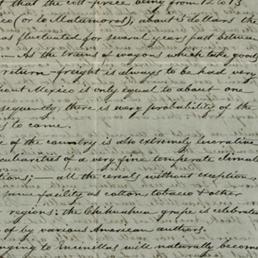 that the cost price being from 12 to 13
ico (or to Matamoros), about 15 dollars the
as fluctuated for several years just between
— As the trains of wagons which take goods
return-freight is always to be had very
hout Mexico is only equal to about one
sequently there is every probability of the
s to come.
e of the country is also extremely lucrative
culiarities of a very fine temperate climate
tions; — all the cereals without exception,
same facility as cotton, tobacco & other
regions; the Chihuahua grape is celebrated
of by various American authors.
nging to will naturally become